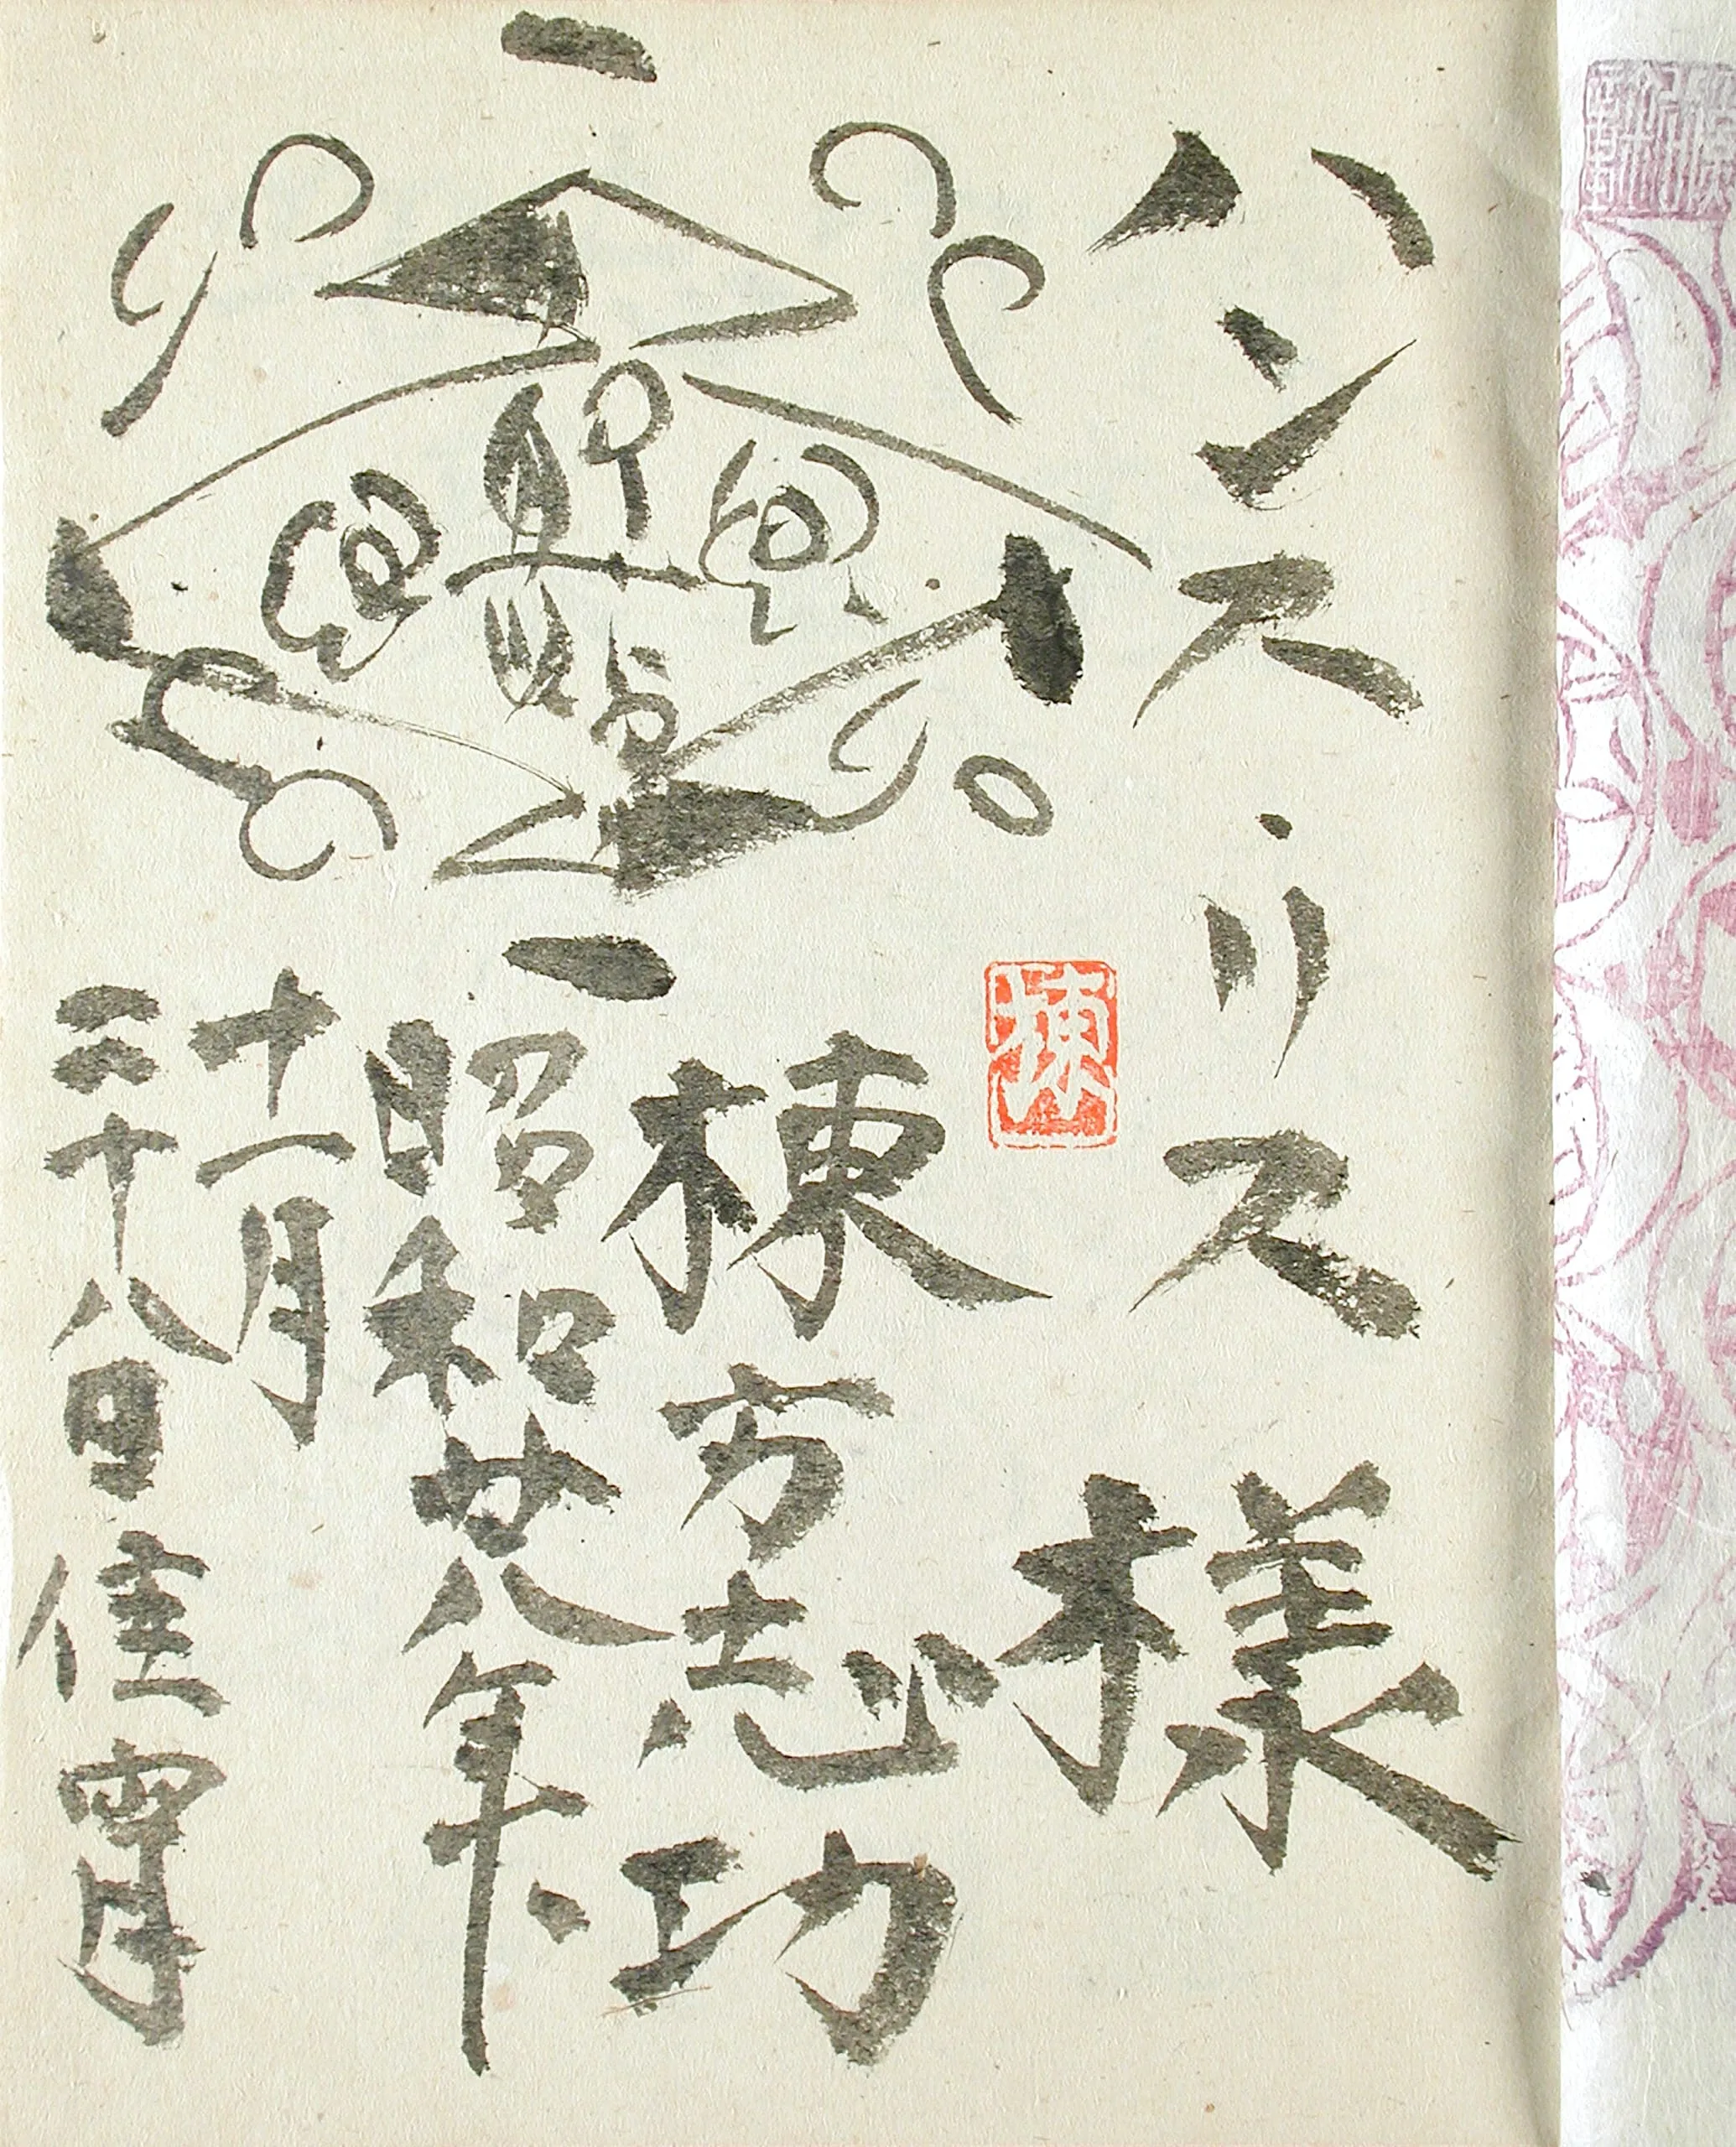 ハンス・リス 様
棟方志功
昭和廿八年.
十一月
二十八日佳宵
棟